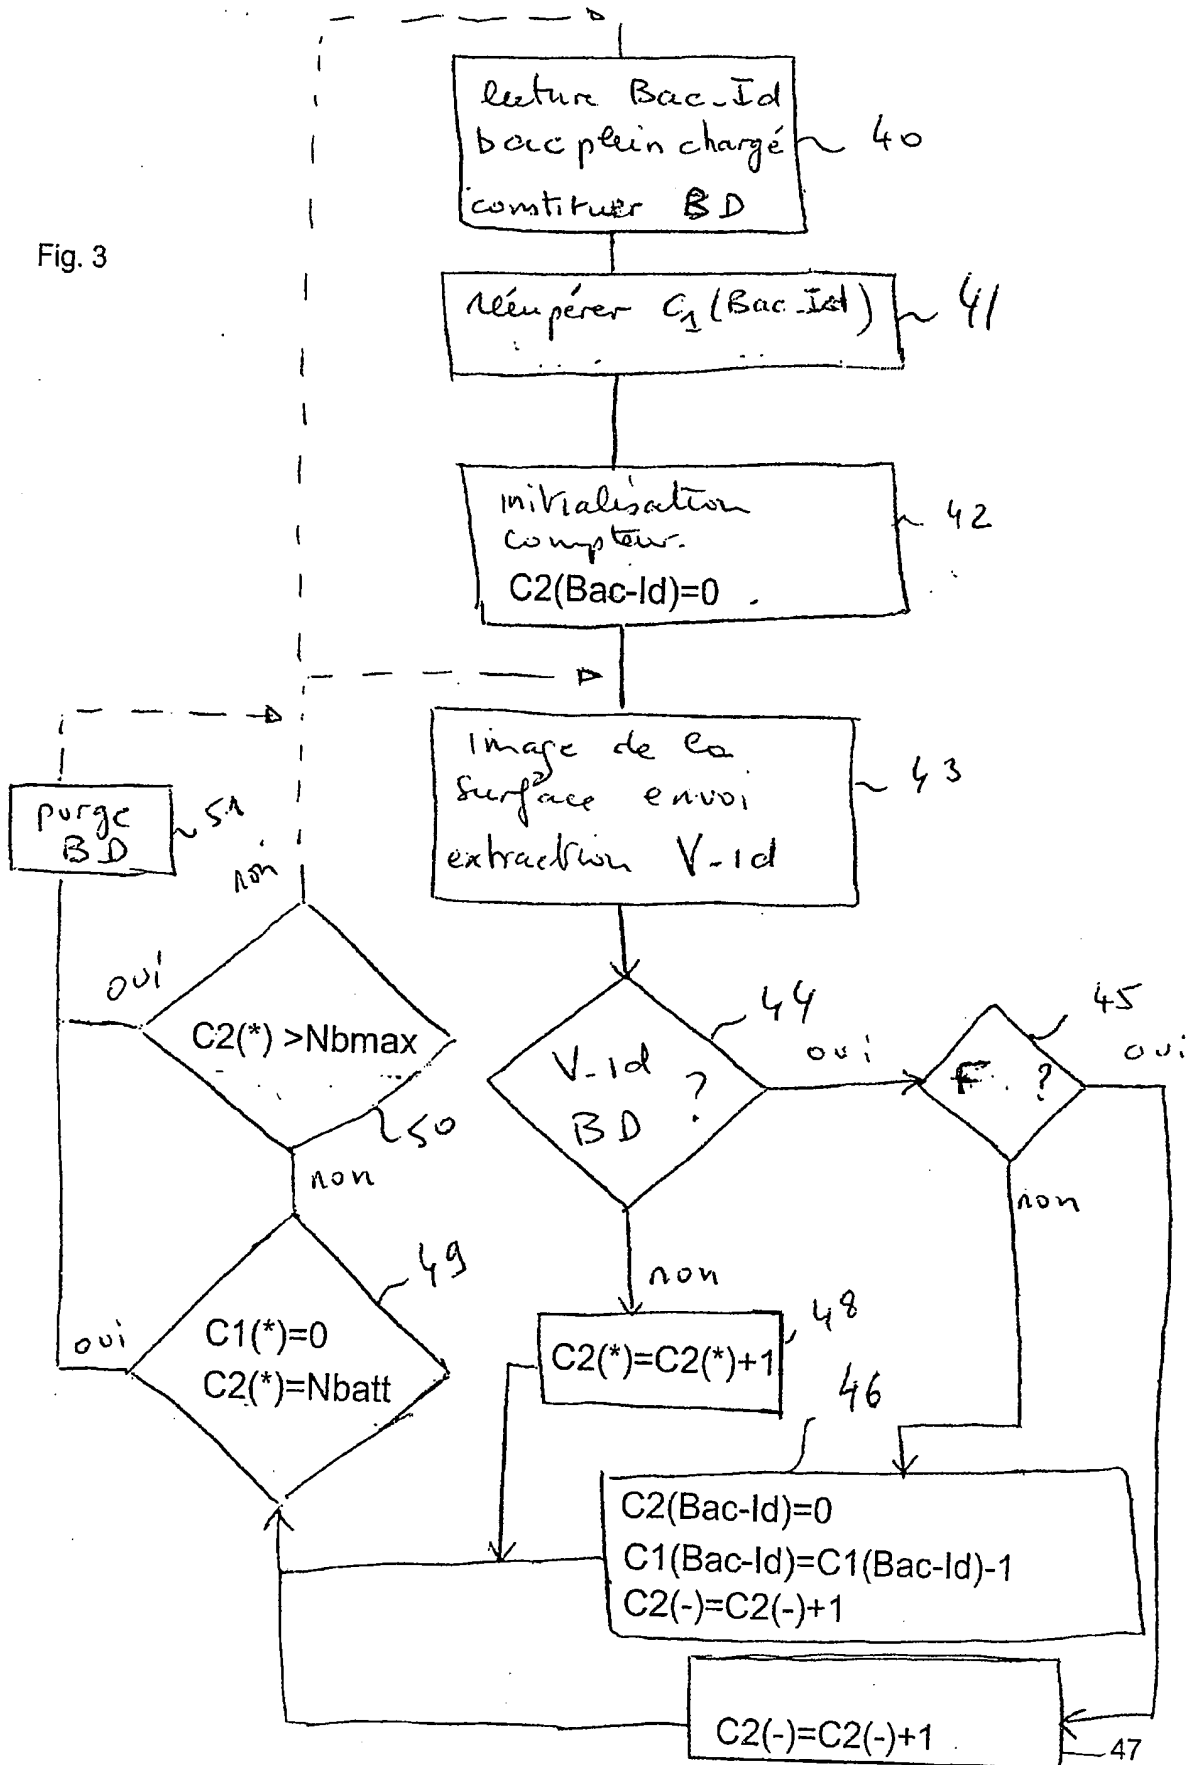 lecture Bac-Id
bac plein chargé
constituer BD
40
Fig. 3
récupérer C1 (Bac-Id)
41
initialisation
compteur.
C2(Bac-Id)=0
42
Image de la
surface envoi
extraction V-id
43
purge
BD
51
non
oui
C2(*) >Nbmax
50
non
V-id
BD ?
44
oui
F. ?
45
oui
non
non
C1(*)=0
C2(*)=Nbatt
49
oui
C2(*)=C2(*)+1
48
46
C2(Bac-Id)=0
C1(Bac-Id)=C1(Bac-Id)-1
C2(-)=C2(-)+1
C2(-)=C2(-)+1
47